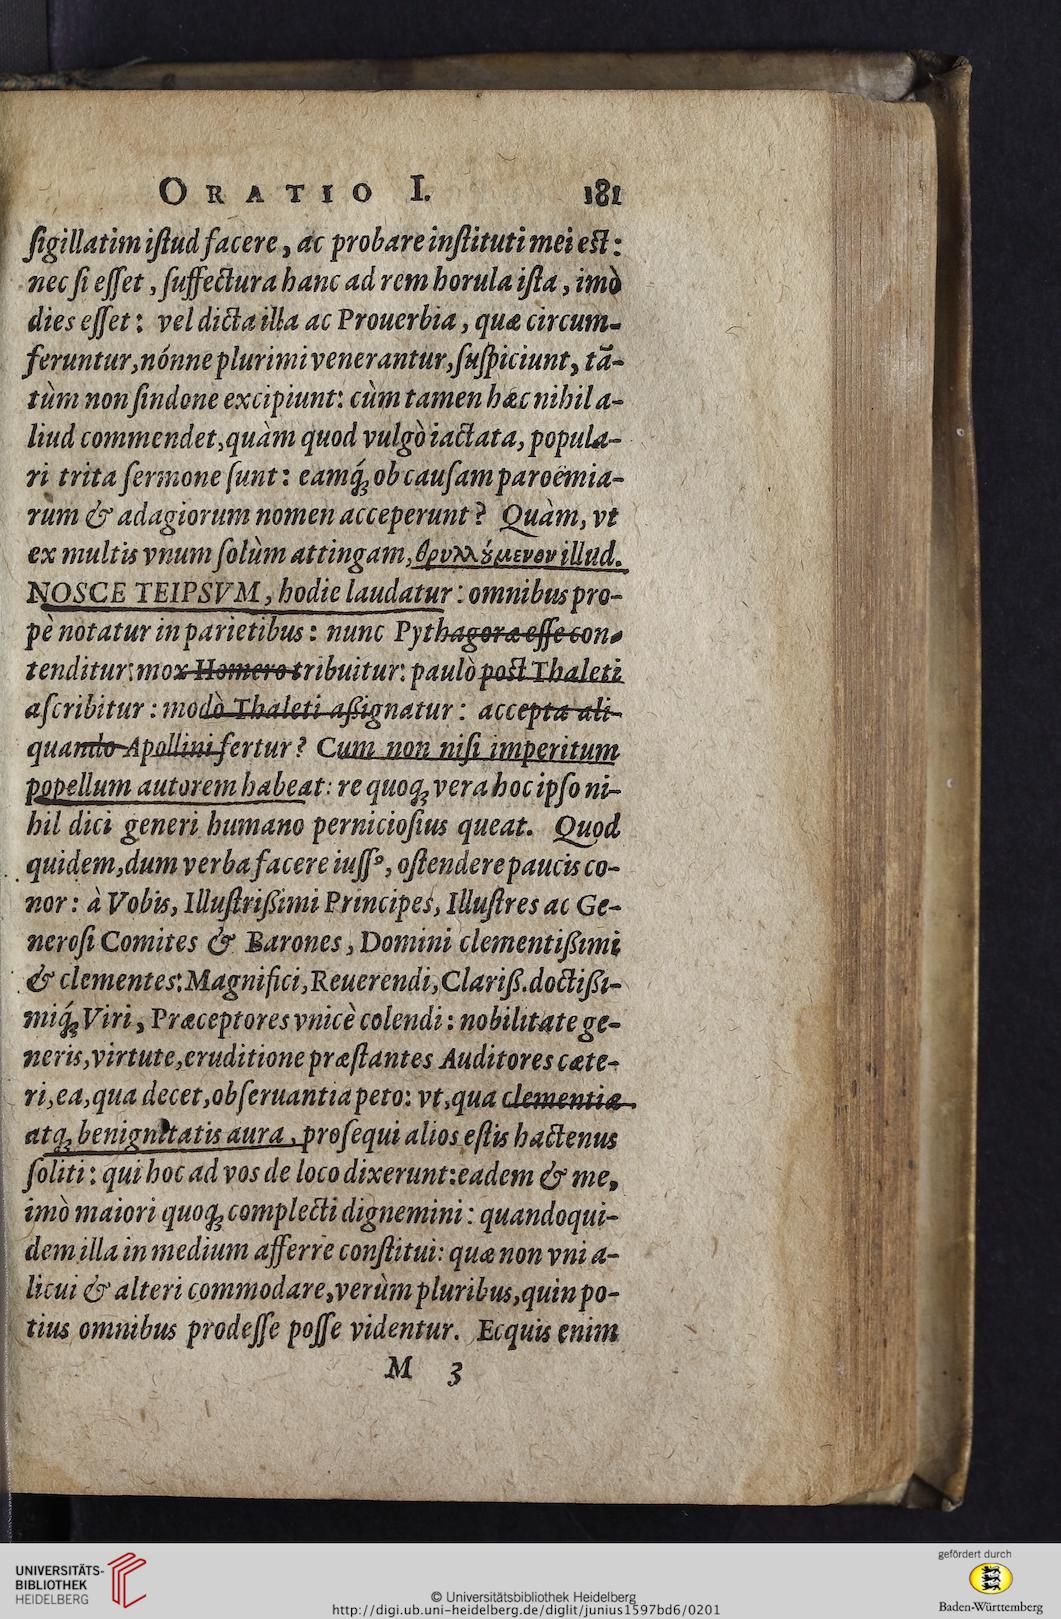 ORATIO I. 181
ſigillatim iſtud facere, ac probare inſtituti mei eſt:
nec ſi eſſet, ſuffectura hanc ad rem horula iſta, imò
dies eſſet: vel dicta illa ac Prouerbia, quæ circum-
feruntur, nónne plurimi venerantur, ſuſpiciunt, tã-
tùm non ſindone excipiunt: cùm tamen hæc nihil a-
liud commendet, quàm quod vulgò iactata, popula-
ri trita ſermone ſunt: eamq́; ob cauſam paroëmia-
rum & adagiorum nomen acceperunt? Quàm, vt
ex multis vnum ſolùm attingam, θρυλλȣ́μενον illud.
NOSCE TEIPSVM, hodie laudatur: omnibus pro-
pè notatur in parietibus: nunc Pythagoræ eſſe con-
tenditur: mox Homero tribuitur: paulò poſt Thaleti
aſcribitur: modò Thaleti aßignatur: accepta ali-
quando Apollini fertur? Cum non niſi imperitum
popellum autorem habeat: re quoq; vera hoc ipſo ni-
hil dici generi humano pernicioſius queat. Quod
quidem, dum verba facere iuſſꝰ, oſtendere paucis co-
nor: à Vobis, Illuſtrißimi Principes, Illuſtres ac Ge-
neroſi Comites & Barones, Domini clementißimi
& clementes: Magnifici, Reuerendi, Clariß. doctißi-
miq́; Viri, Præceptores vnicè colendi: nobilitate ge-
neris, virtute, eruditione præſtantes Auditores cæte-
ri, ea, qua decet, obſeruantia peto: vt, qua clementiæ
atq; benignitatis aura, proſequi alios eſtis hactenus
ſoliti: qui hoc ad vos de loco dixerunt: eadem & me,
imò maiori quoq; complecti dignemini: quandoqui-
dem illa in medium afferre conſtitui: quæ non vni a-
licui & alteri commodare, verùm pluribus, quin po-
tius omnibus prodeſſe poſſe videntur. Ecquis enim
M 3
UNIVERSITÄTS-
BIBLIOTHEK
HEIDELBERG
© Universitätsbibliothek Heidelberg
http://digi.ub.uni-heidelberg.de/diglit/junius1597bd6/0201
gefördert durch
Baden-Württemberg